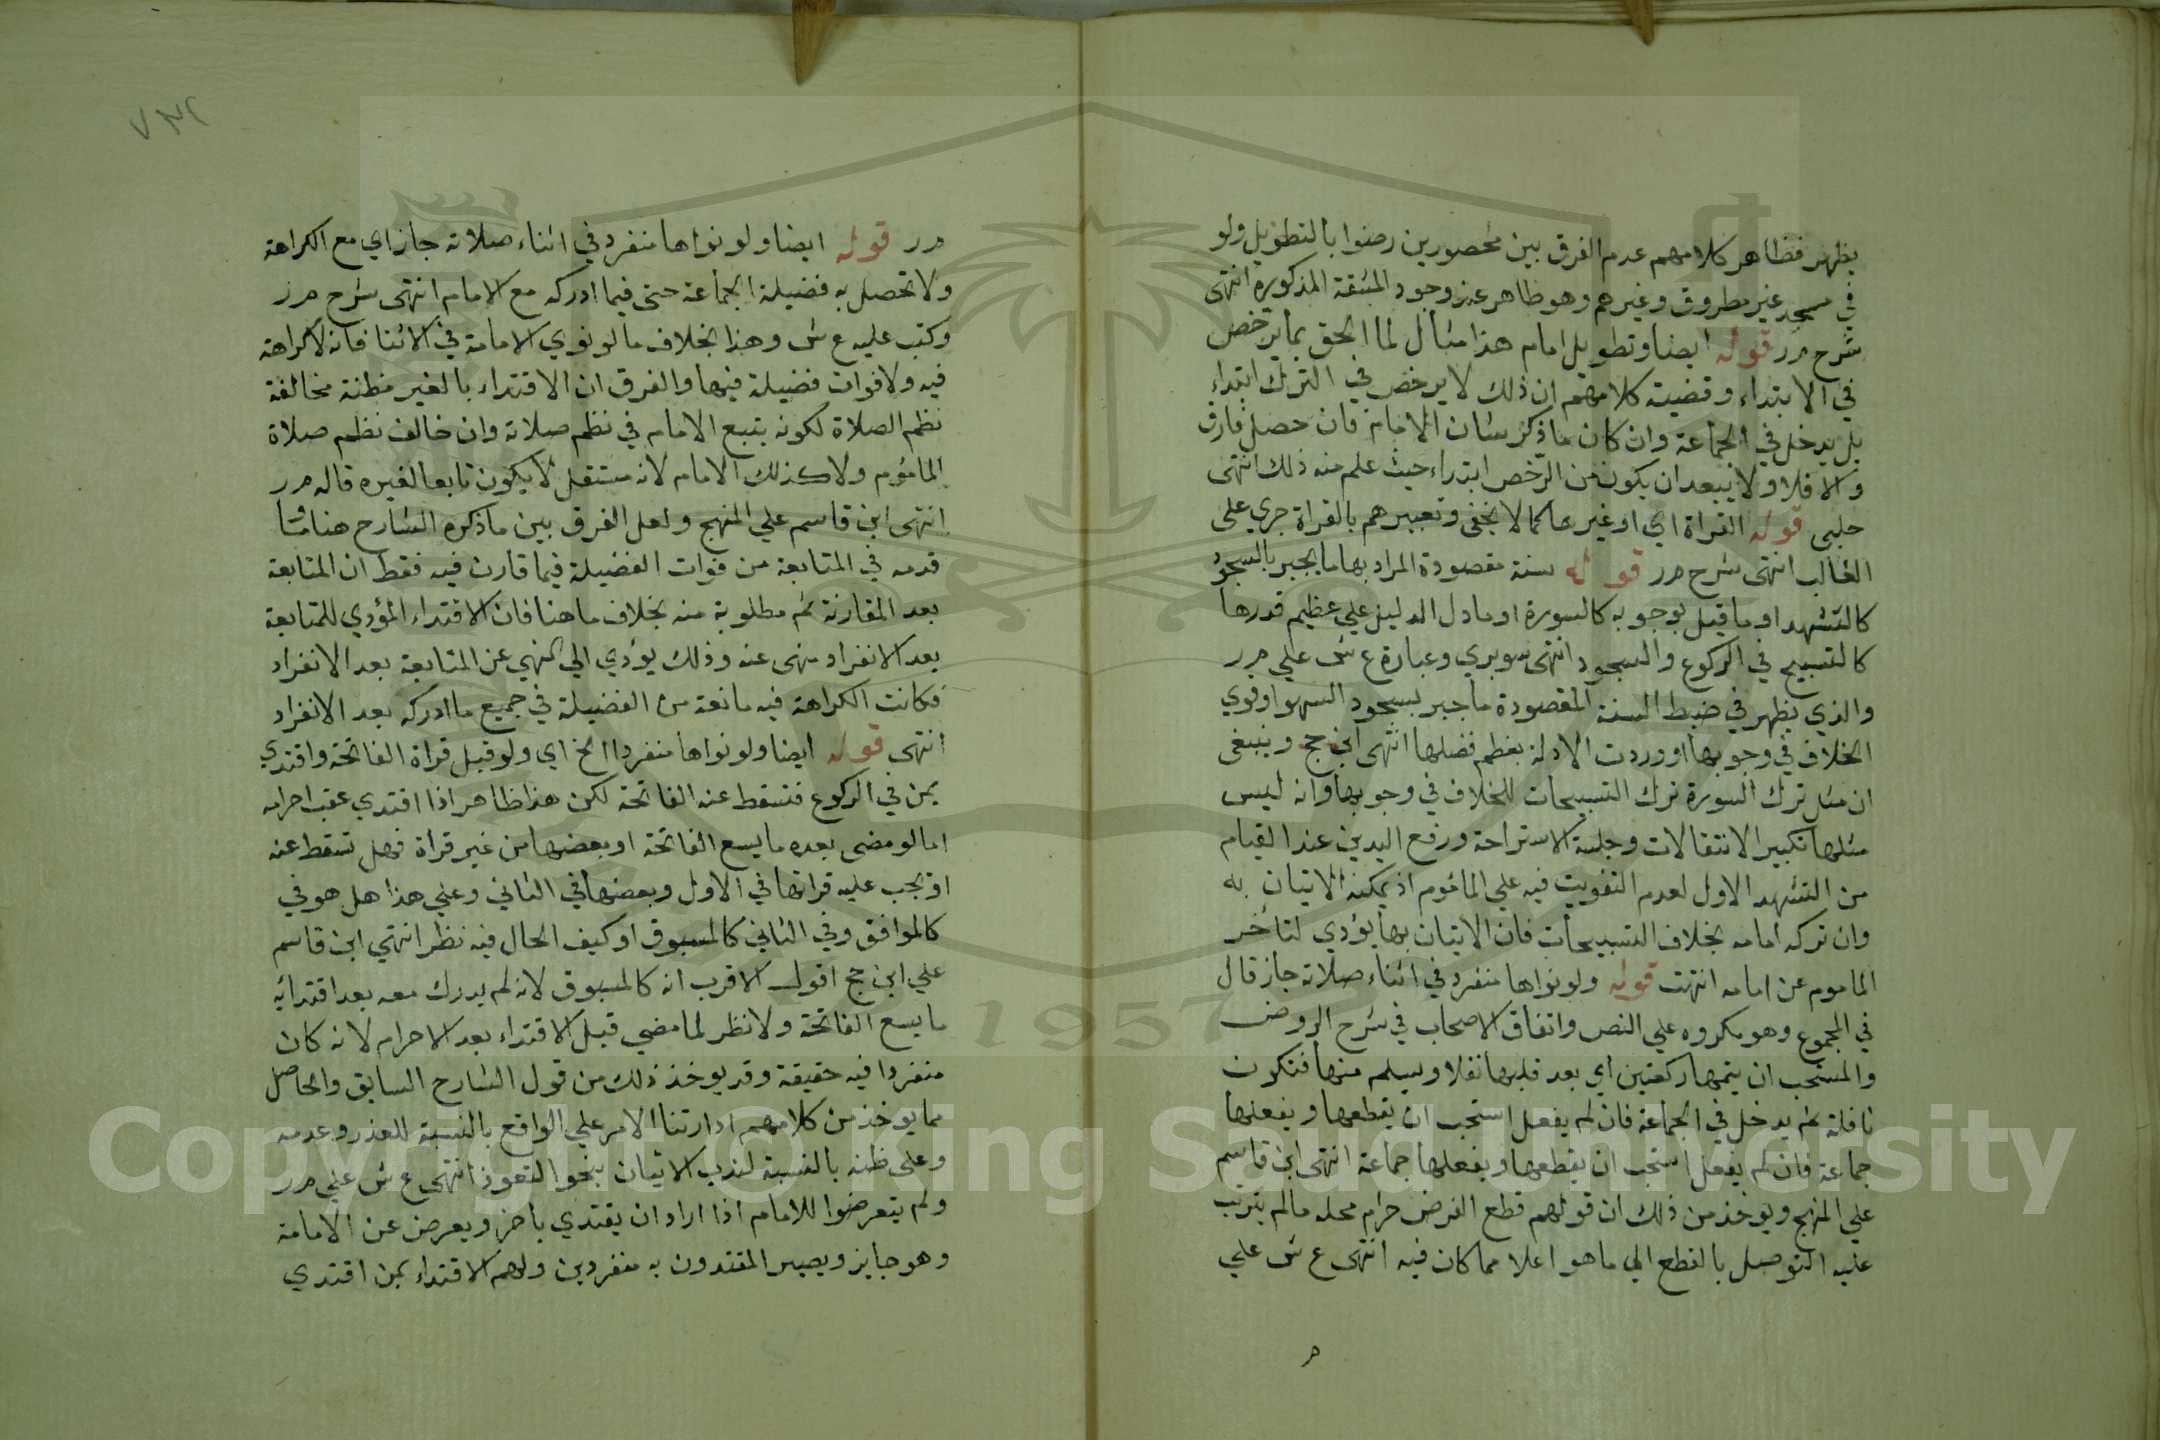 يظهر فظاهر كلامهم عدم الفرق بين محصورين رضوا بالتطويل ولو
في مسجد غير مطروق وغيرهم وهو ظاهر عند وجود المشقة المذكورة انتهى
شرح م ر قوله ايضا وتطويل امام هذا مثال لما الحق بما يرخص
في الابتداء وقضية كلامهم ان ذلك لا يرخص في الترك ابتداء
بل يدخل في الجماعة وان كان ما ذكر شان الامام فان حصل فارق
والا فلا ولا يبعد ان يكون من الرخص ابتداء حيث علم منه ذلك انتهى
حلبى قوله القراة اي او غيرها كما لا يخفى وتعبيرهم بالقراة جري على
الغالب انتهى شرح م ر قوله سنة مقصودة المراد بها ما يجبر بالسجود
كالتشهد او ما قيل بوجوبه كالسورة او ما دل الدليل علي عظيم قدرها
كالتسبيح في الركوع والسجود انتهى شوبري وعبارة ع ش علي م ر
والذي يظهر في ضبط السنة المقصودة ما جبر بسجود السهو او قوي
الخلاف في وجوبها او وردت الادلة بعظم فضلها انتهى ابن حج وينبغى
ان مثل ترك السورة ترك التسبيحات للخلاف في وجوبها وانه ليس
مثلها تكبير الانتقالات وجلسة الاستراحة ورفع اليدين عند القيام
من التشهد الاول لعدم التفويت فيه علي الماموم اذ يمكنه الاتيان به
وان تركه امامه بخلاف التسبيحات فان الاتيان بها يؤدي لتاخر
الماموم عن امامه انتهت قوله ولو نواها منفرد في اثناء صلاته جاز قال
في المجموع وهو مكروه علي النص واتفاق الاصحاب في شرح الروض
والمستحب ان يتمها ركعتين اي بعد قلبها نفلا ويسلم منها فتكون
نافلة ثم يدخل في الجماعة فان لم يفعل استحب ان يقطعها ويفعلها
جماعة فان لم يفعل استحب ان يقطعها ويفعلها جماعة انتهى ابن قاسم
علي المنهج ويوخذ من ذلك ان قولهم قطع الفرض حرام محله ما لم يترتب
عليه التوصل بالقطع الي ما هو اعلا مما كان فيه انتهى ع ش علي
م
م ر قوله ايضا ولو نواها منفرد في اثناء صلاته جاز اي مع الكراهة
ولا تحصل به فضيلة الجماعة حتى فيما ادركه مع الامام انتهى شرح م ر
وكتب عليه ع ش وهذا بخلاف ما لو نوي الامامة في الاثنا فانه لا كراهة
فيه ولا فوات فضيلة فيها والفرق ان الاقتداء بالغير مظنة مخالفة
نظم الصلاة لكونه يتبع الامام في نظم صلاته وان خالف نظم صلاة
الماموم ولا كذلك الامام لانه مستقل لا يكون تابعا لغيره قاله م ر
انتهى ابن قاسم علي المنهج ولعل الفرق بين ما ذكره الشارح هنا وما
قدمه في المتابعة من فوات الفضيلة فيما قارن فيه فقط ان المتابعة
بعد المقارنة ثم مطلوبة منه بخلاف ما هنا فان الاقتداء المؤدي للمتابعة
بعد الانفراد منهى عنه وذلك يؤدي الي النهي عن المتابعة بعد الانفراد
فكانت الكراهة فيه مانعة من الفضيلة في جميع ما ادركه بعد الانفراد
انتهى قوله ايضا ولو نواها منفردا الخ اي ولو قبل قراة الفاتحة واقتدي
بمن في الركوع فتسقط عنه الفاتحة لكن هذا ظاهر اذا اقتدي عقب احرامه
اما لو مضى بعده ما يسع الفاتحة او بعضها من غير قراة فهل تسقط عنه
او تجب عليه قراتها في الاول وبعضها في الثاني وعلي هذا هل هو في
كالموافق وفي الثاني كالمسبوق او كيف الحال فيه نظر انتهي ابن قاسم
علي ابن حج اقول الاقرب انه كالمسبوق لانه لم يدرك معه بعد اقتدائه
ما يسع الفاتحة ولا نظر لما مضي قبل الاقتداء بعد الاحرام لانه كان
منفردا فيه حقيقة وقد يوخذ ذلك من قول الشارح السابق والحاصل
مما يوخذ من كلامهم ادارتنا الامر علي الواقع بالنسبة للعذر وعدمه
وعلى ظنه بالنسبة لندب الاتيان بنحو التعوذ انتهى ع ش علي م ر
ولم يتعرضوا للامام اذا اراد ان يقتدي باخر ويعرض عن الامامة
وهو جايز ويصير المقتدون به منفردين ولهم الاقتداء بمن اقتدي
1957
Copyright © King Saud University